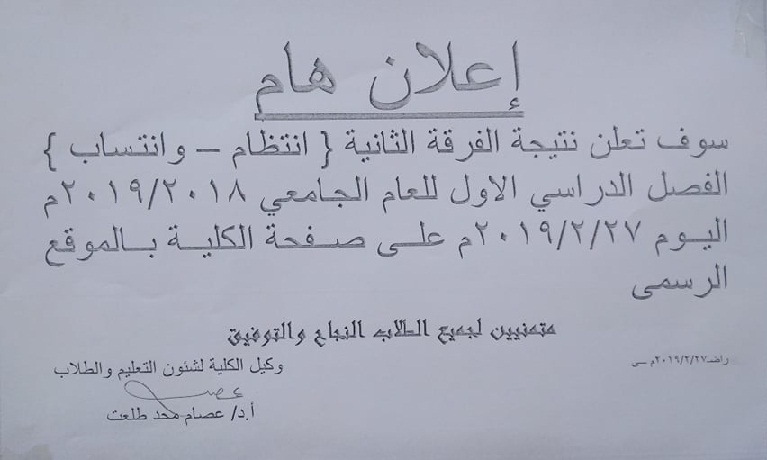 إعلان هام
سوف تعلن نتيجة الفرقة الثانية { انتظام – وانتساب }
الفصل الدراسي الاول للعام الجامعي ٢٠١٩/٢٠١٨م
اليوم ٢٠١٩/٢/٢٧م على صفحة الكلية بالموقع
الرسمى
متمنيين لجميع الطلاب النجاح والتوفيق
وكيل الكلية لشئون التعليم والطلاب
أ.د/ عصام محمد طلعت
٢٠١٩/٢/٢٧م